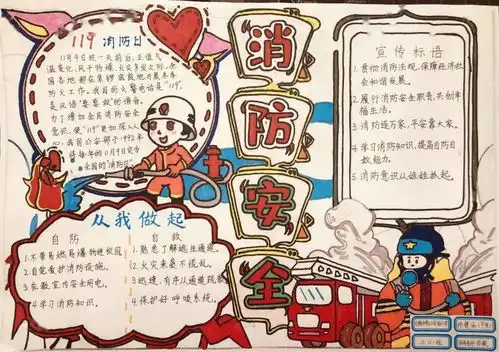 119 消防日
11月9日这一天前后,正值风
火灾多发之际,全
国各地都在紧锣密鼓地开展冬季
防火工作。我国的火警电话是"119",
是汉语"要要救"的谐音。
为了增加全民消防安全
意识,使"119"更加深入人
心,公安部于1992年
将每年的11月9日定为
全国的"消防日"。
消防安全
宣传标语
1.贯彻消防法规,保障经济社
会和谐发展。
2.履行消防安全职责,共创幸
福生活。
3.消防连万家,平安靠大家。
4.学习消防知识,提高自防自
救能力。
5.消防意识从娃娃抓起。
从我做起
自防
1.不带易燃易爆物进校园。
2.自觉爱护消防设施。
3.在教室内安全用电。
4.学习消防知识。
自救
1.熟悉了解逃生通道。
2.火灾来袭不慌乱。
3.迅速、有序从通道疏散
4.保护好呼吸系统。